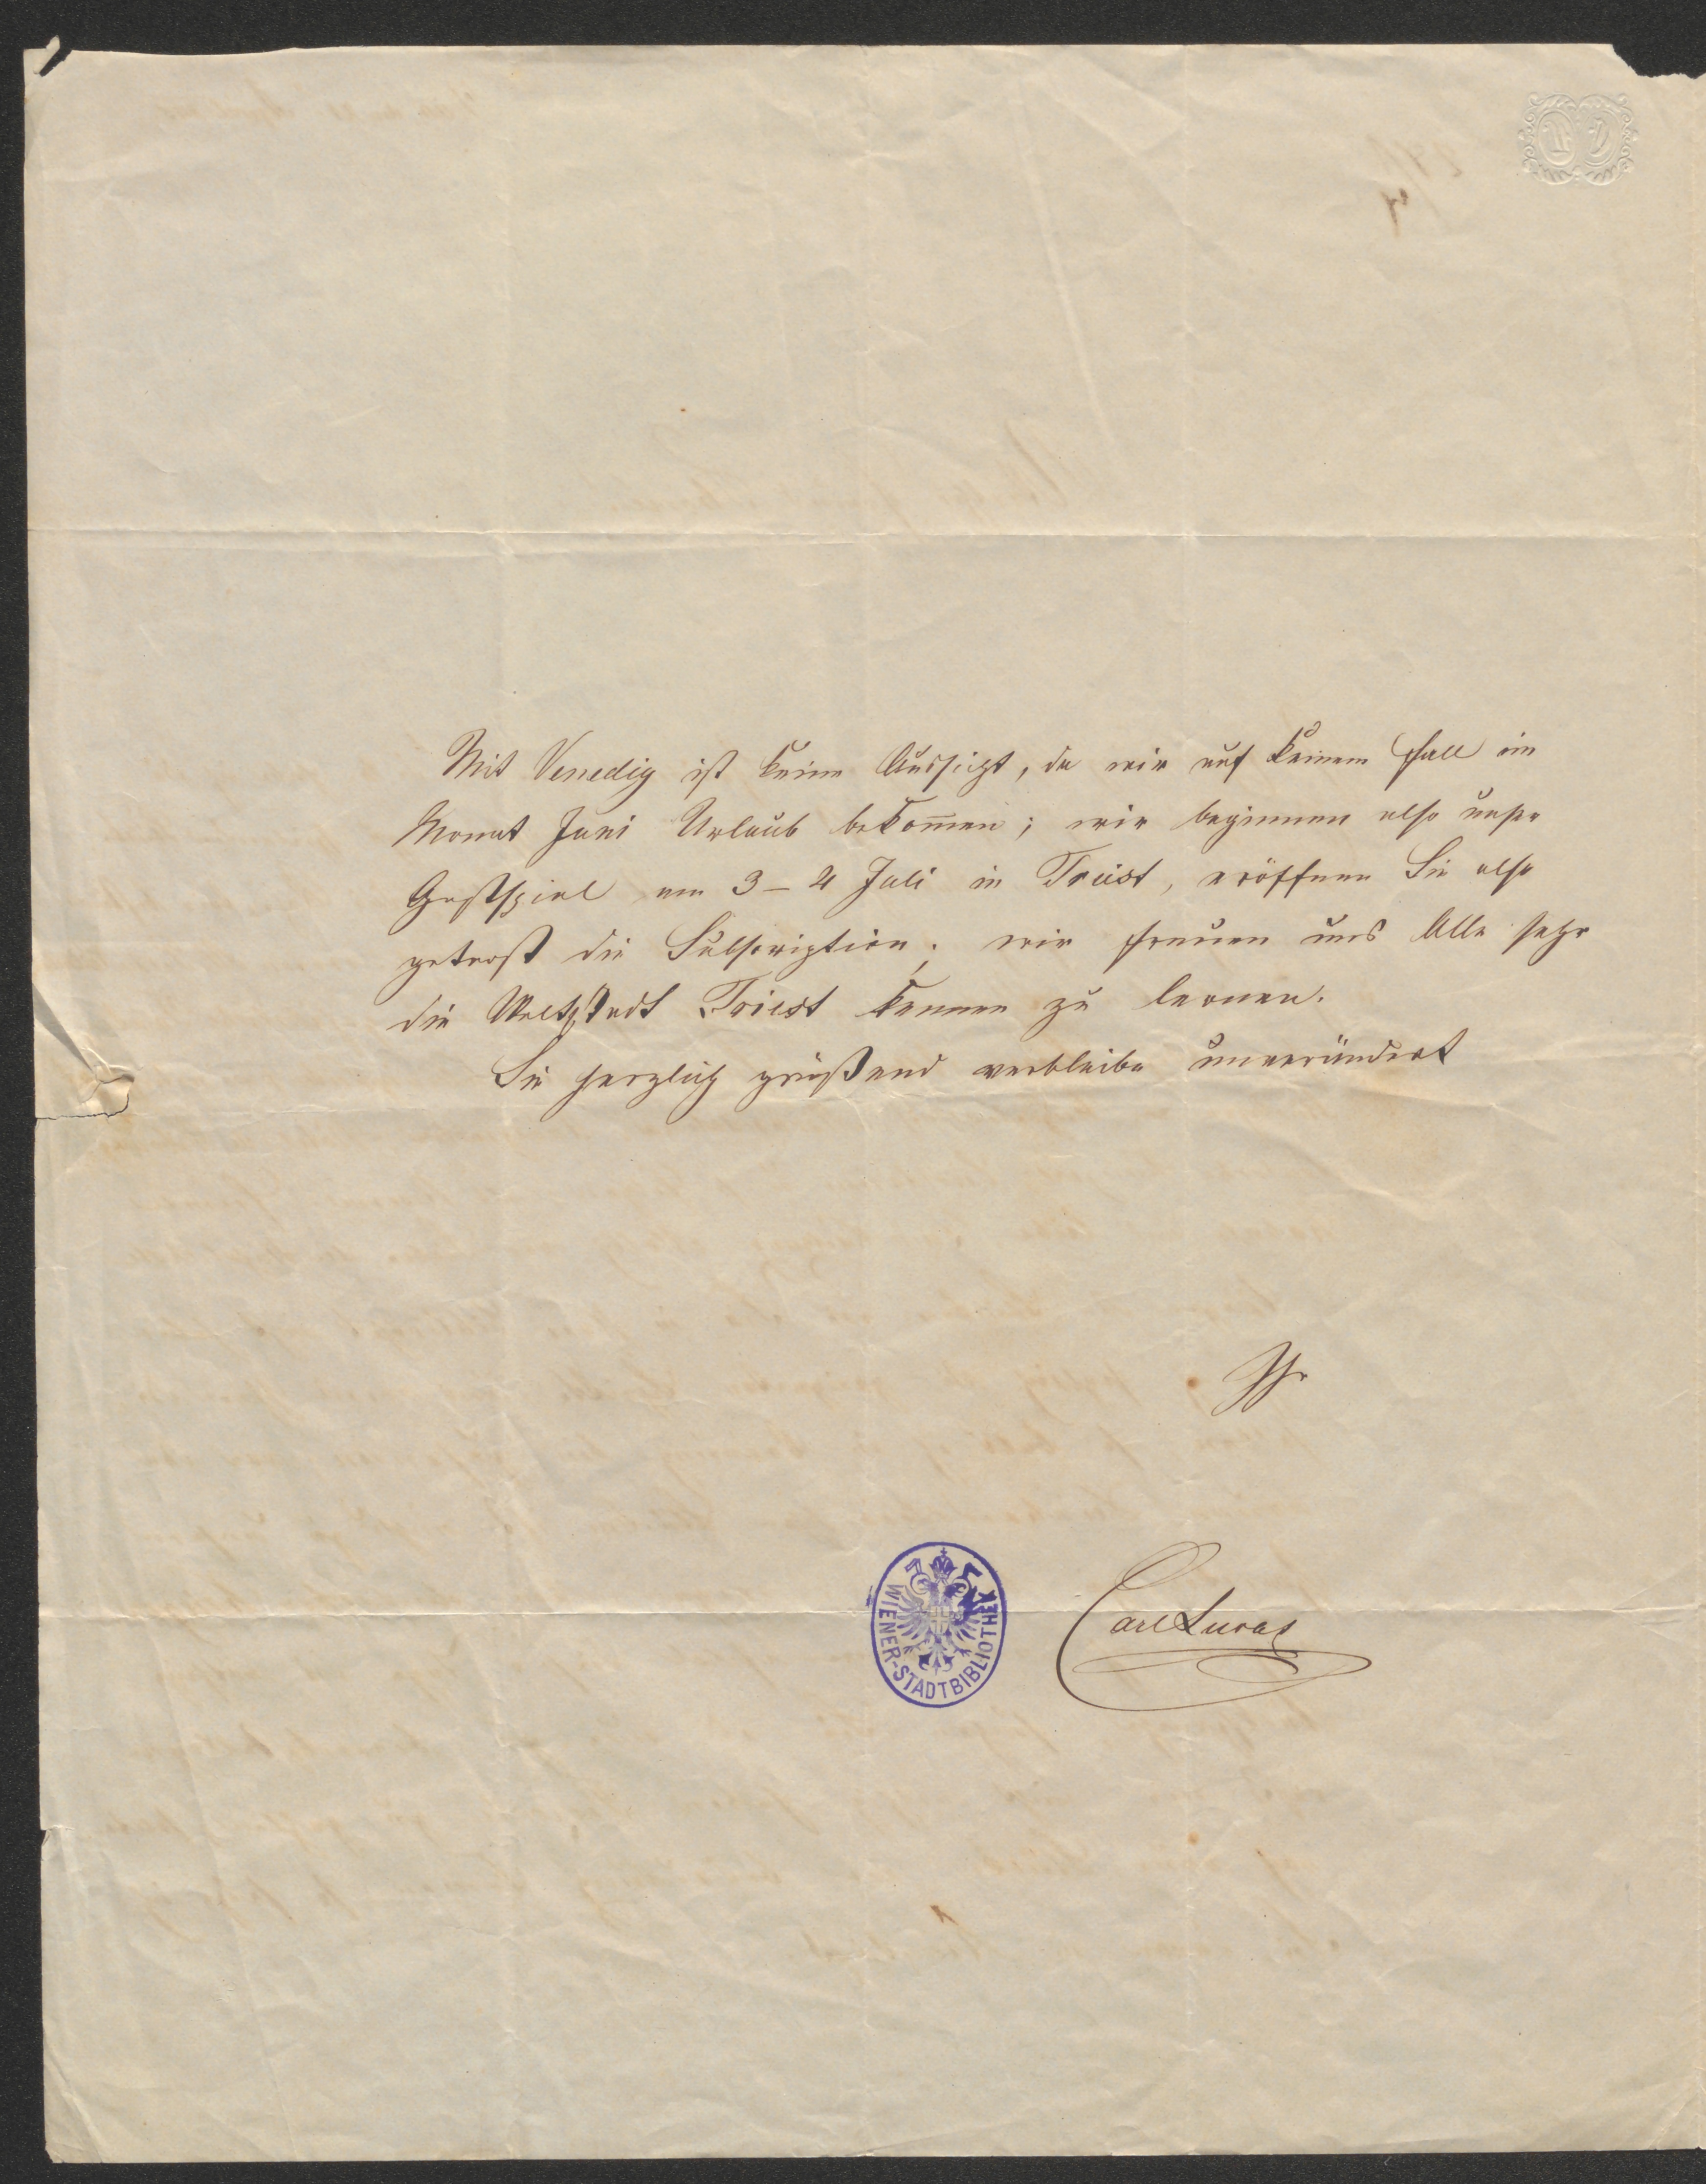 Mit Venedig ist keine Aussicht, da wir auf keinem Fall im
Monat Juni Urlaub bekom̅en; wir beginnen also unser
Gastspiel am 3 – 4 Juli in Triest, eröffnen Sie also
getrost die Subscription; wir freuen uns Alle sehr
die Weltstadt Triest kennen zu lernen.
Sie herzlich grüßend verbleibe unverändert
Ihr
Carl Lucas
WIENER-STADTBIBLIOTHEK